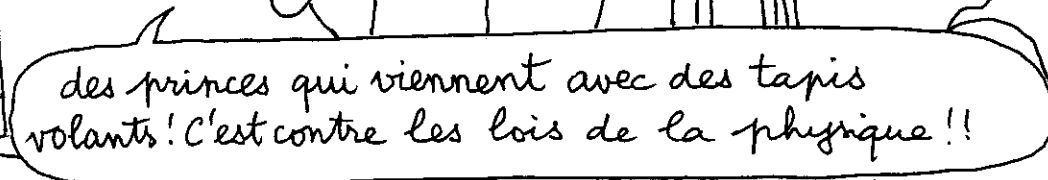 des princes qui viennent avec des tapis
volants! C'est contre les lois de la physique!!